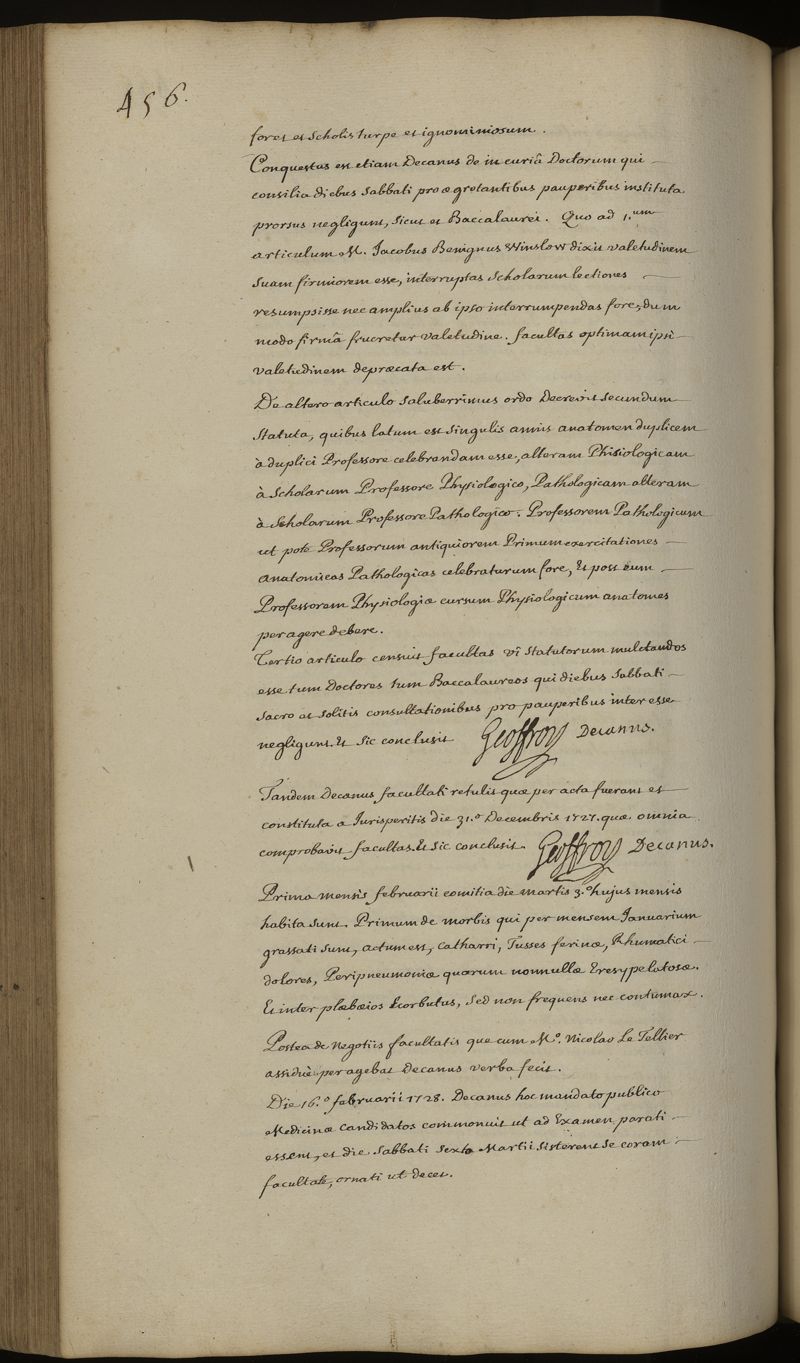 456.
foret et Scholis turpe et ignominiosum.
Conquestus est etiam Decanus de in curiâ Doctorum qui
consilia diebus Sabbati pro ægrotantibus pauperibus instituta
prorsus negligunt, sicut et Baccalaurei. Quo ad 1.um
articulum M. Jacobus Benignus Winslow dixit valetudinem
suam firmiorem esse, interruptas Scholarum lectiones
resumpsisse nec amplius ab ipso interrumpendas fore, dum
modo firmâ frueretur valetudine. facultas optimam ipsi
valetudinem depræcata est.
De altero articulo saluberrimus ordo Decrevit secundum
Statuta, quibus latum est singulis annis anatomen duplicem
à duplici Professore celebrandam esse, alteram Phisiologicam
à Scholarum Professore Physiologico, Pathologicam alteram
à Scholarum Professore Pathologico. Professorem Pathologicum
ut pote Professorum antiquiorem Primum exercitationes
anatomicas Pathologicas celebraturum fore, Et post eum
Professorem Physiologiæ cursum Physiologicum anatomes
peragere debere.
Tertio articulo censuit facultas vi Statutorum mulctandos
esse tum Doctores tum Baccalaureos qui diebus Sabbati
sacro et solitis consultationibus pro pauperibus interesse
negligunt. Et Sic conclusit Geoffroy Decanus.
Tandem Decanus facultati retulit quæ per acta fuerant et
constituta a Jurisperitis die 31.a Decembris 1727. quæ omnia
comprobavit facultas. Et sic conclusit. Geoffroy Decanus.
Prima mensis februarii comitia die martis 3.a hujus mensis
habita sunt. Primum de morbis qui per mensem Januarium
grassati sunt, actum est, Catharri, Tusses ferinæ, Rhumatici
dolores, Peripneumoniæ quarum nonnullæ Eresypelatosæ.
Et inter plæbæios scorbutus, sed non frequens nec contumax.
Postea de Negotiis facultatis que cum M.o Nicolao Le Tellier
assiduè peragebat Decanus verba fecit.
Die 16.a februarii 1728. Decanus hoc mandato publico
Medicinæ candidatos commonuit ut ad Examen parati
essent, et die Sabbati sexta Martii sisterent se coram
facultate, ornati ut decet.